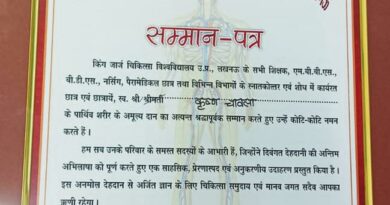 सम्मान-पत्र
किंग जार्ज चिकित्सा विश्वविद्यालय उ.प्र., लखनऊ के सभी शिक्षक, एम.बी.बी.एस.,
बी.डी.एस., नर्सिंग, पैरामेडिकल छात्र तथा विभिन्न विभागों के स्नातकोत्तर एवं शोध में कार्यरत
छात्र एवं छात्रायें, स्व. श्री/श्रीमती कृष्ण चावला
के पार्थिव शरीर के अमूल्य दान का अत्यन्त श्रद्धापूर्वक सम्मान करते हुए उन्हें कोटि-कोटि नमन
करते हैं ।
हम सब उनके परिवार के समस्त सदस्यों के आभारी हैं, जिन्होंने दिवंगत देहदानी की अन्तिम
अभिलाषा को पूर्ण करते हुए एक साहसिक, प्रेरणास्पद एवं अनुकरणीय उदाहरण प्रस्तुत किया है ।
इस अनमोल देहदान से अर्जित ज्ञान के लिए चिकित्सा समुदाय एवं मानव जगत सदैव आपका
ऋणी रहेगा ।